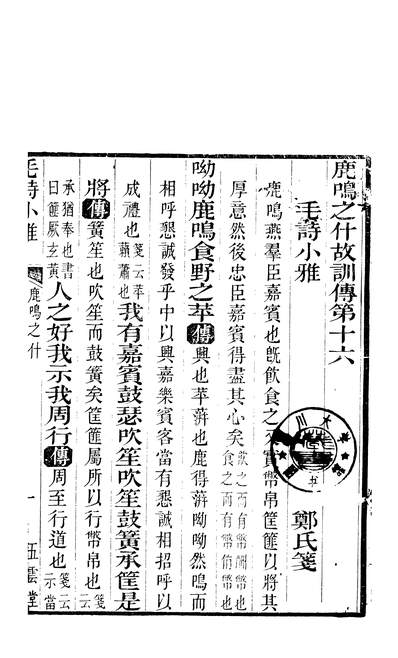 鹿鳴之什故訓傳第十六
毛詩小雅
鄭氏箋
鹿鳴燕羣臣嘉賓也旣飲食之又實幣帛筐篚以將其
厚意然後忠臣嘉賓得盡其心矣飲之而有幣酬幣也食之而有幣侑幣也
呦呦鹿鳴食野之苹傳興也苹蓱也鹿得蓱呦呦然鳴而
相呼懇誠發乎中以興嘉樂賓客當有懇誠相招呼以
成禮也箋云苹藾蕭也我有嘉賓鼓瑟吹笙吹笙鼓簧承筐是
將傳簧笙也吹笙而鼓簧矣筐篚屬所以行幣帛也箋云
承猶奉也書曰篚厥玄黃人之好我示我周行傳周至行道也箋云示當
毛詩小雅 鹿鳴之什 一 五雲堂